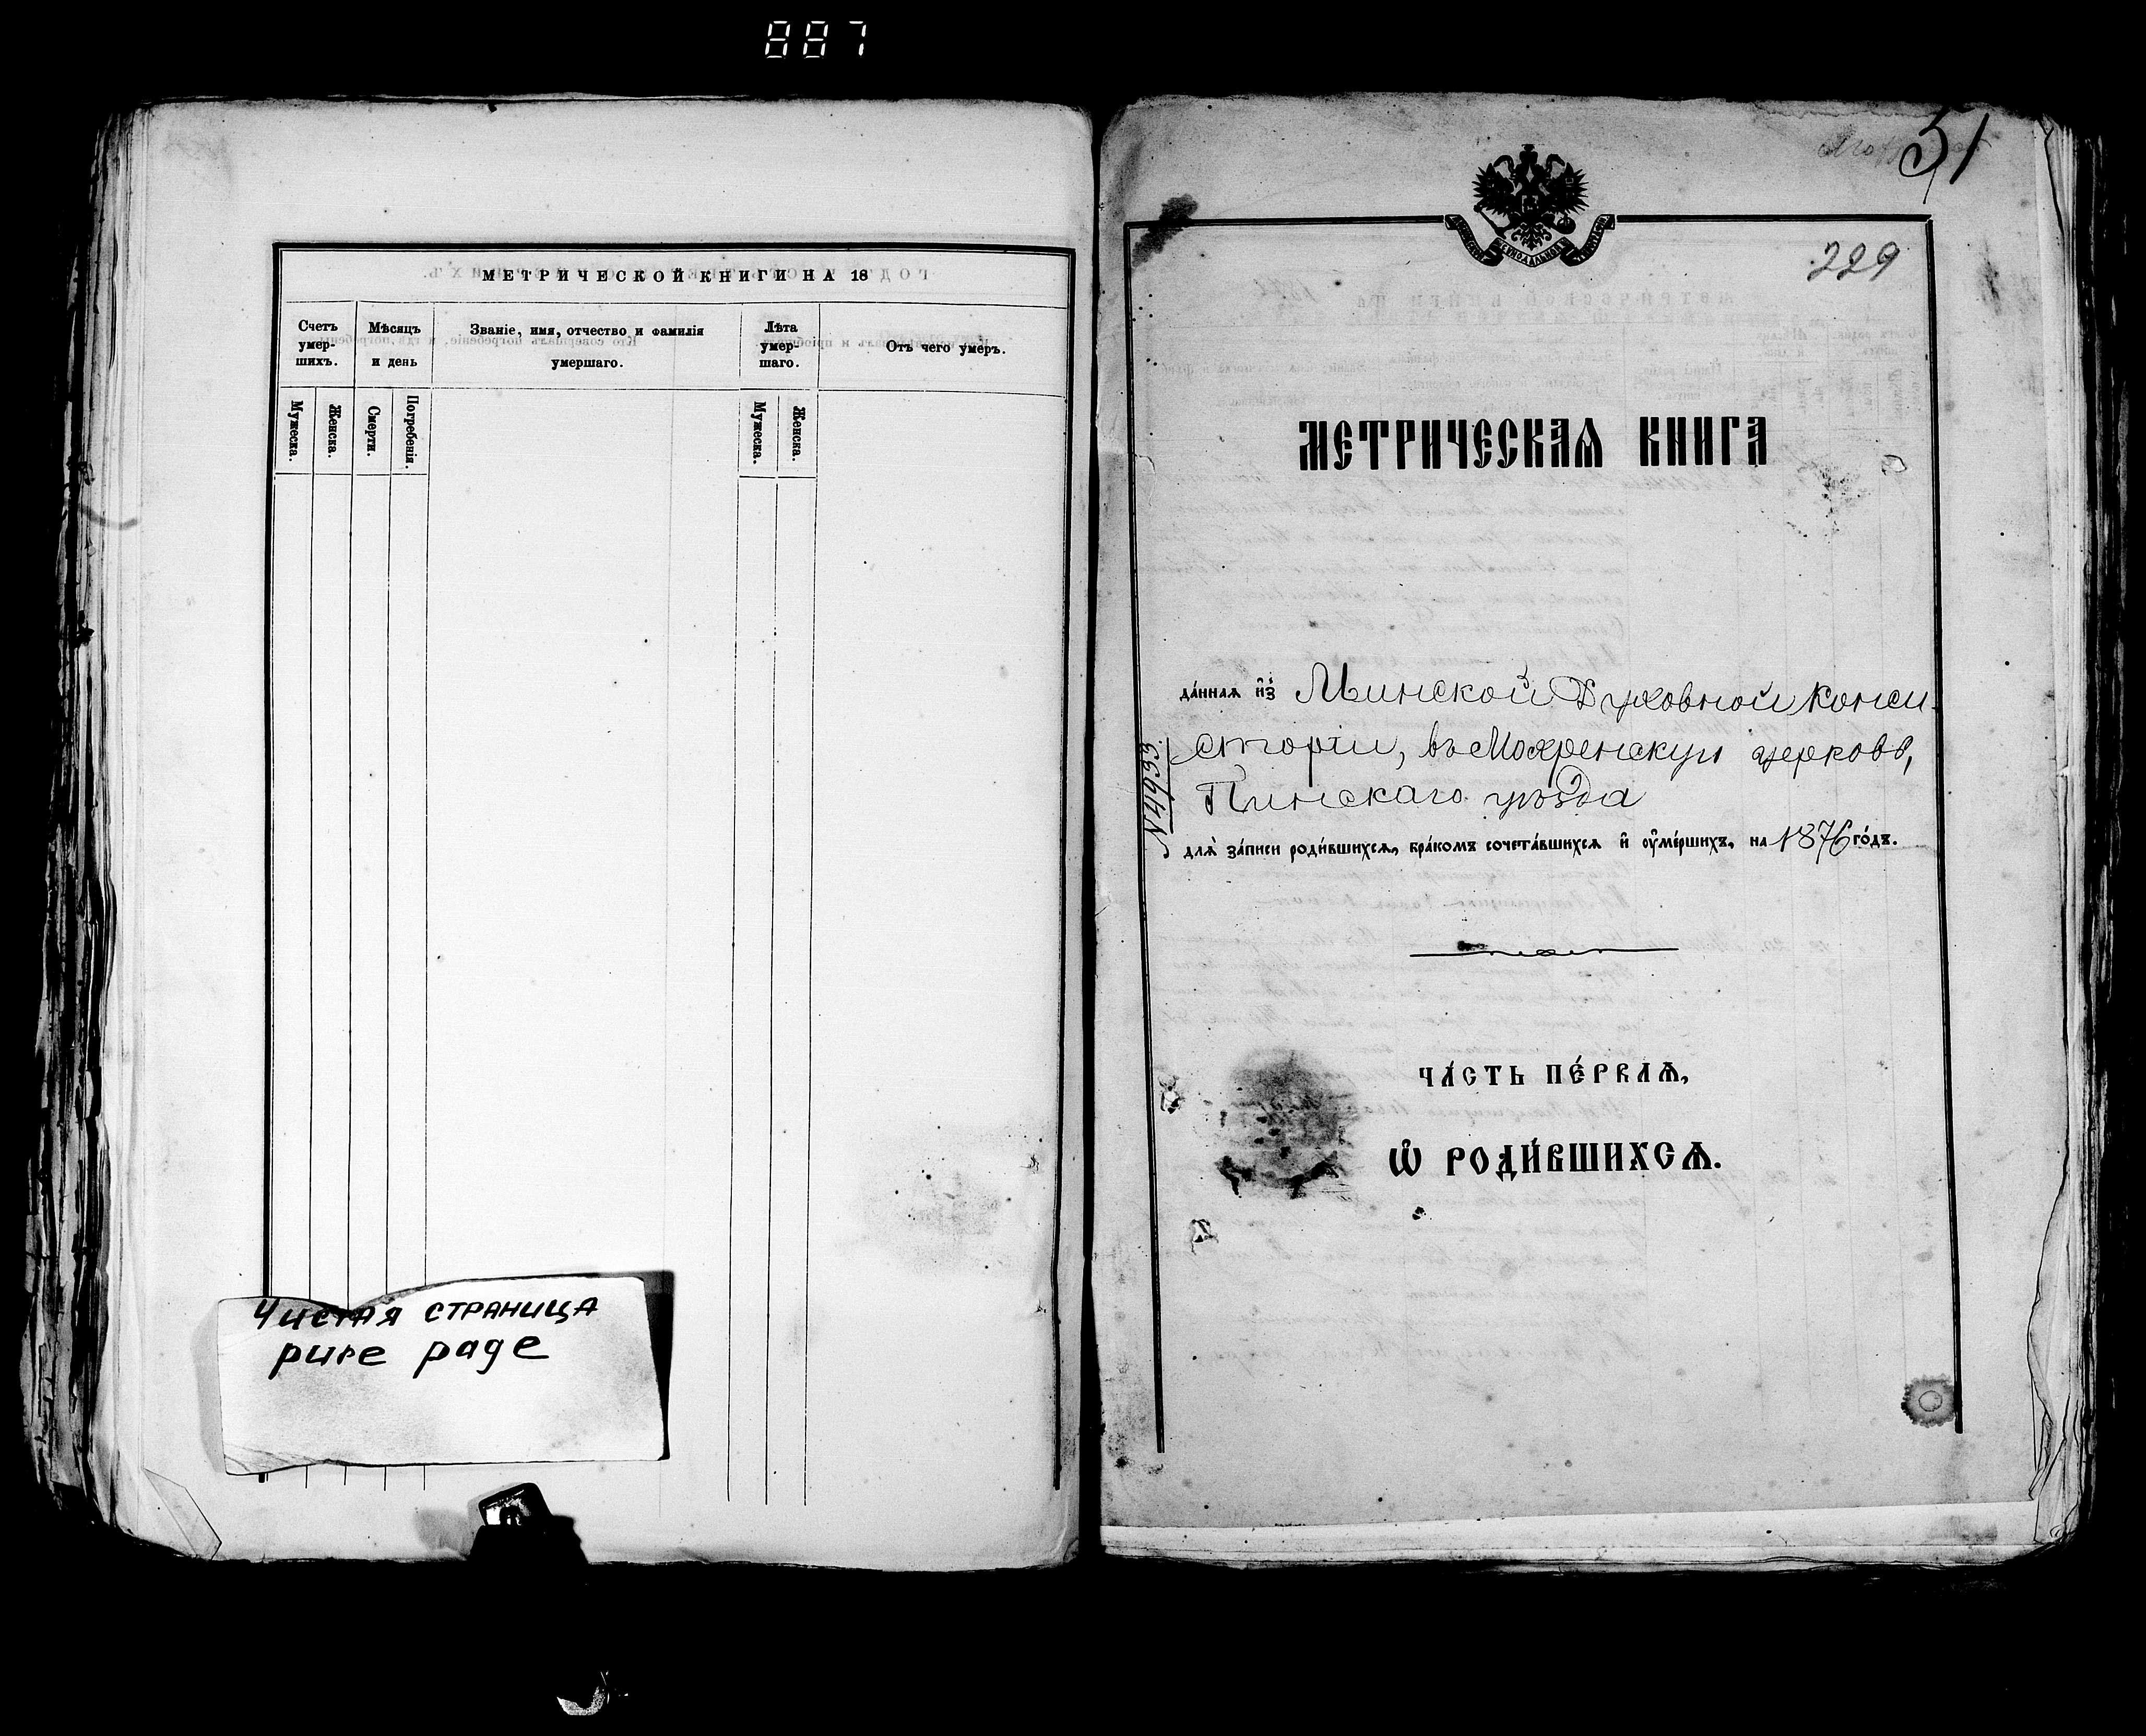 887
МЕТРИЧЕСКОЙ КНИГИ НА 18
Счетъ умер-шихъ.
Мѣсяцъ и день
Званіе, имя, отчество и фамилія
умершаго.
Лѣта умер-шаго.
Отъ чего умеръ.
Мужеска.
Женска.
Смерти.
Погребенія.
Мужеска.
Женска.
Чистая страница
pure page
51
229
МЕТРИЧЕСКАѦ КНИГА
да́ннаѧ и҆з̾ Минской Духовной Конси-
сторіи, въ Мохренскую церковь,
Пинскаго уѣзда
N 4933
для̀ за́писи роди́вшихсѧ, бра́комъ сочета́вшихсѧ и҆ ᲂу҆ме́ршихъ, на 1876 го́дъ.
ЧА́СТЬ ПЕ́РВАѦ,
Ѽ РОДИ́ВШИХСѦ.